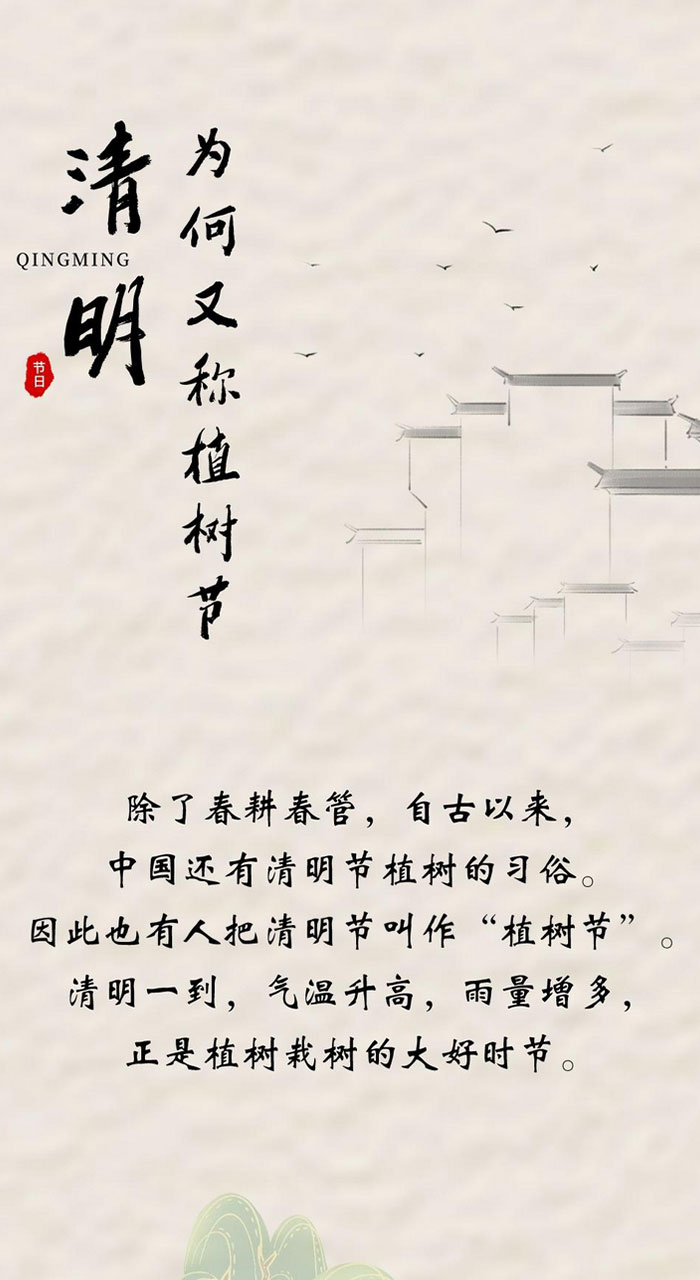 清明
QINGMING
节日
为何又称植树节
除了春耕春管，自古以来，
中国还有清明节植树的习俗。
因此也有人把清明节叫作“植树节”。
清明一到，气温升高，雨量增多，
正是植树栽树的大好时节。